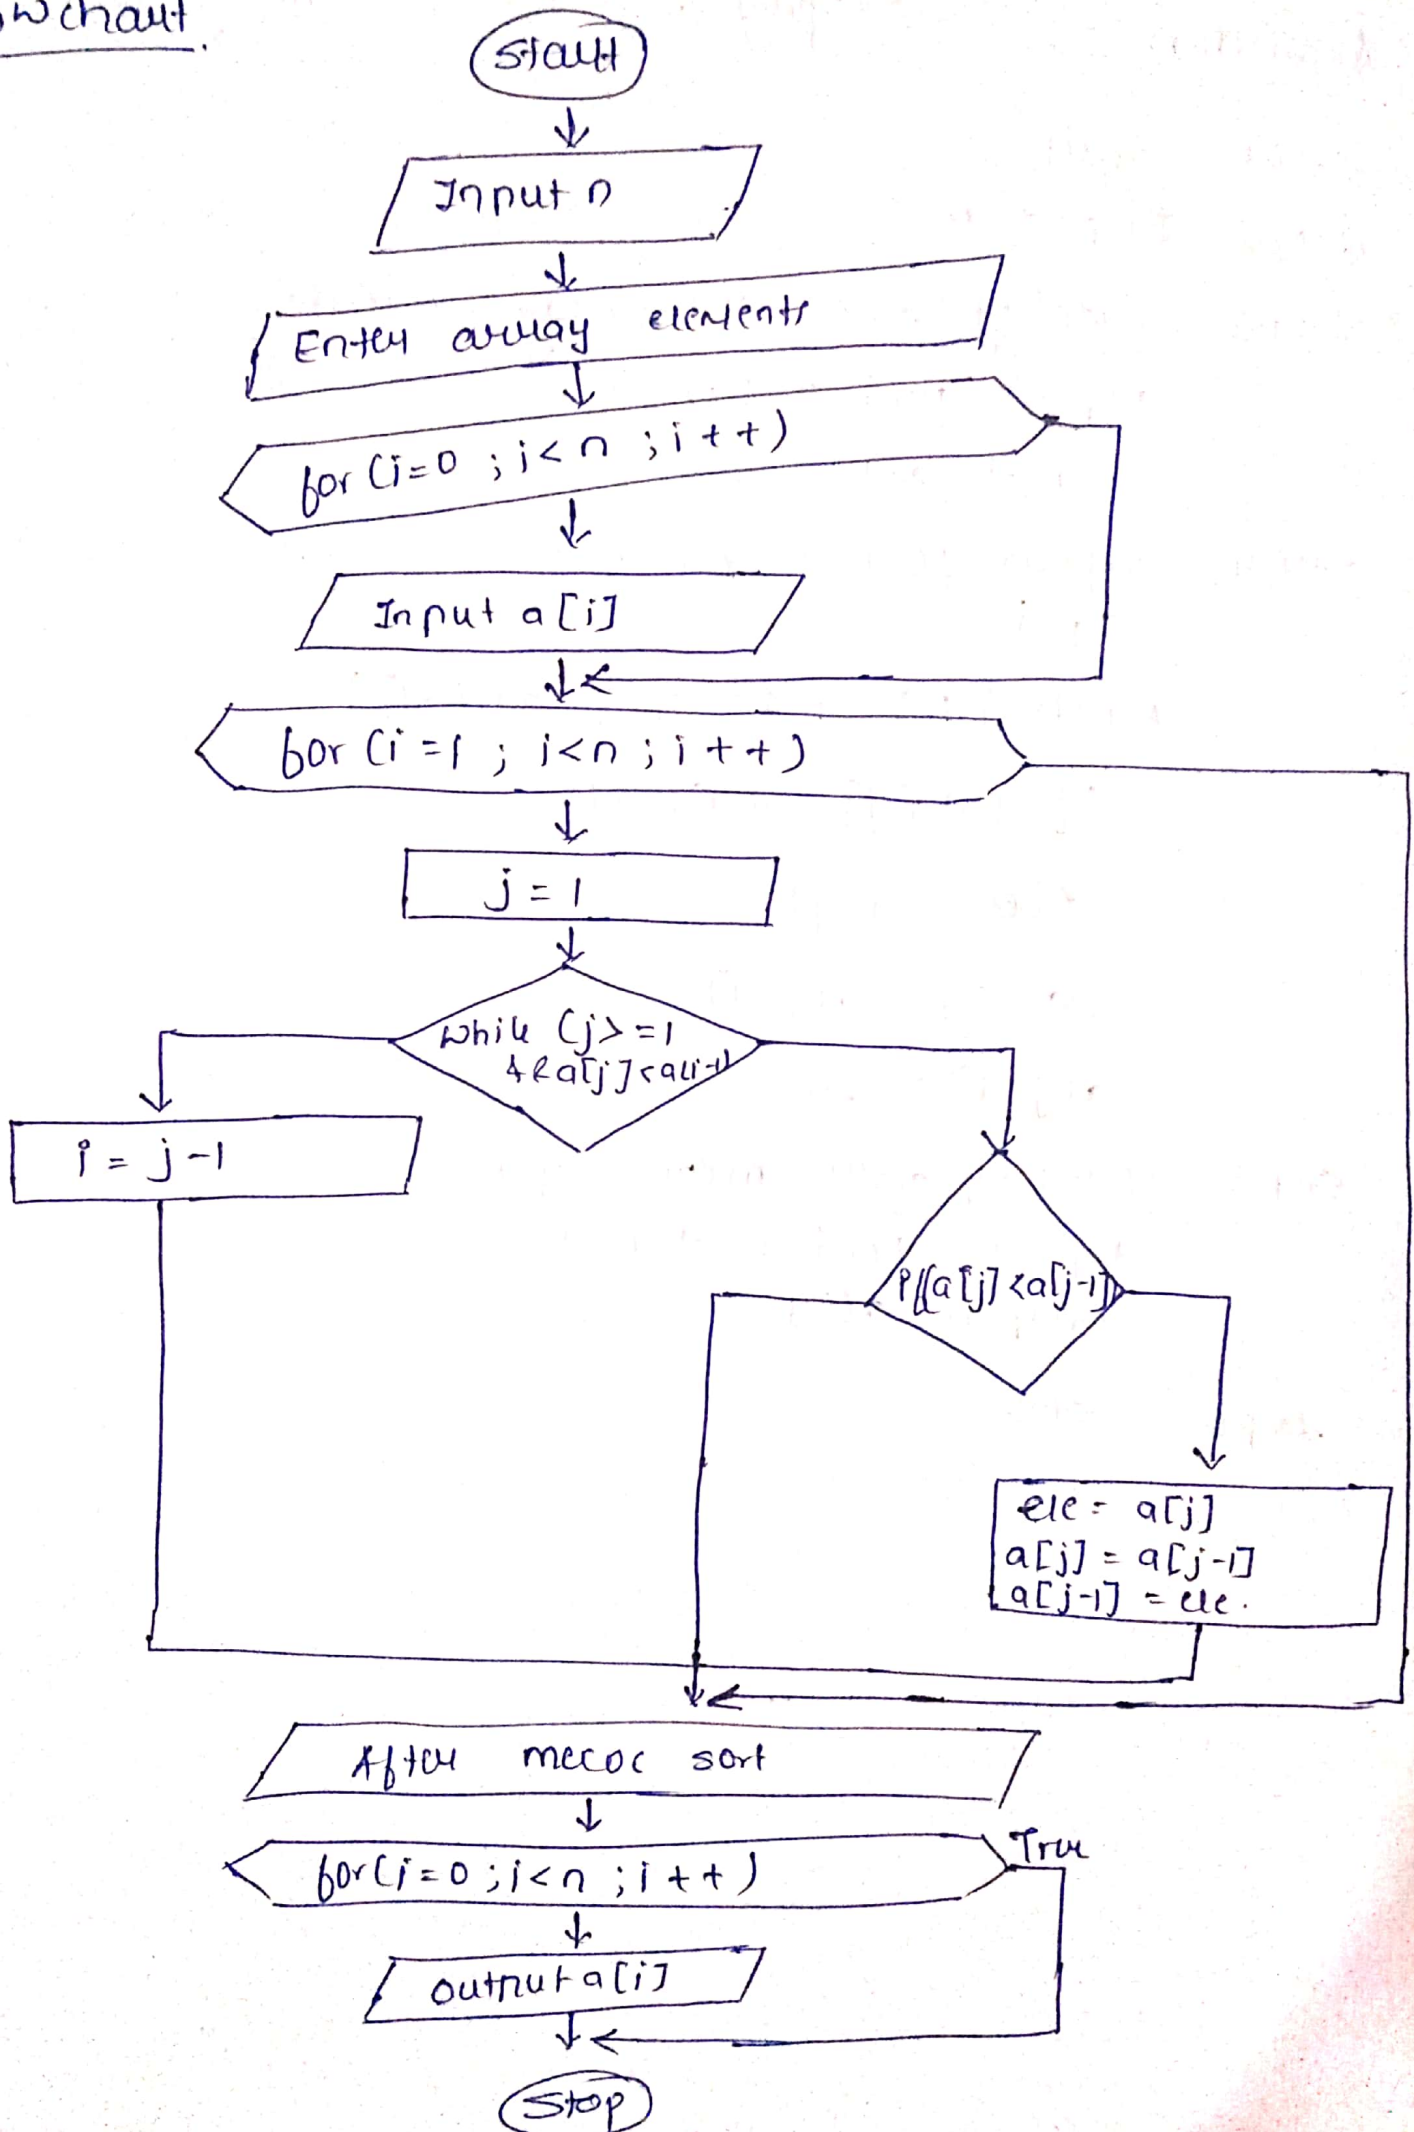 wchart.
Start
Input n
Enter array elements
for (i=0 ; i<n ; i++)
Input a[i]
for (i=1 ; i<n ; i++)
j=1
while (j>=1
&& a[j]<a[j-1]
i = j-1
if(a[j]<a[j-1])
ele = a[j]
a[j] = a[j-1]
a[j-1] = ele.
After sort
for(i=0 ; i<n ; i++)
True
output a[i]
Stop